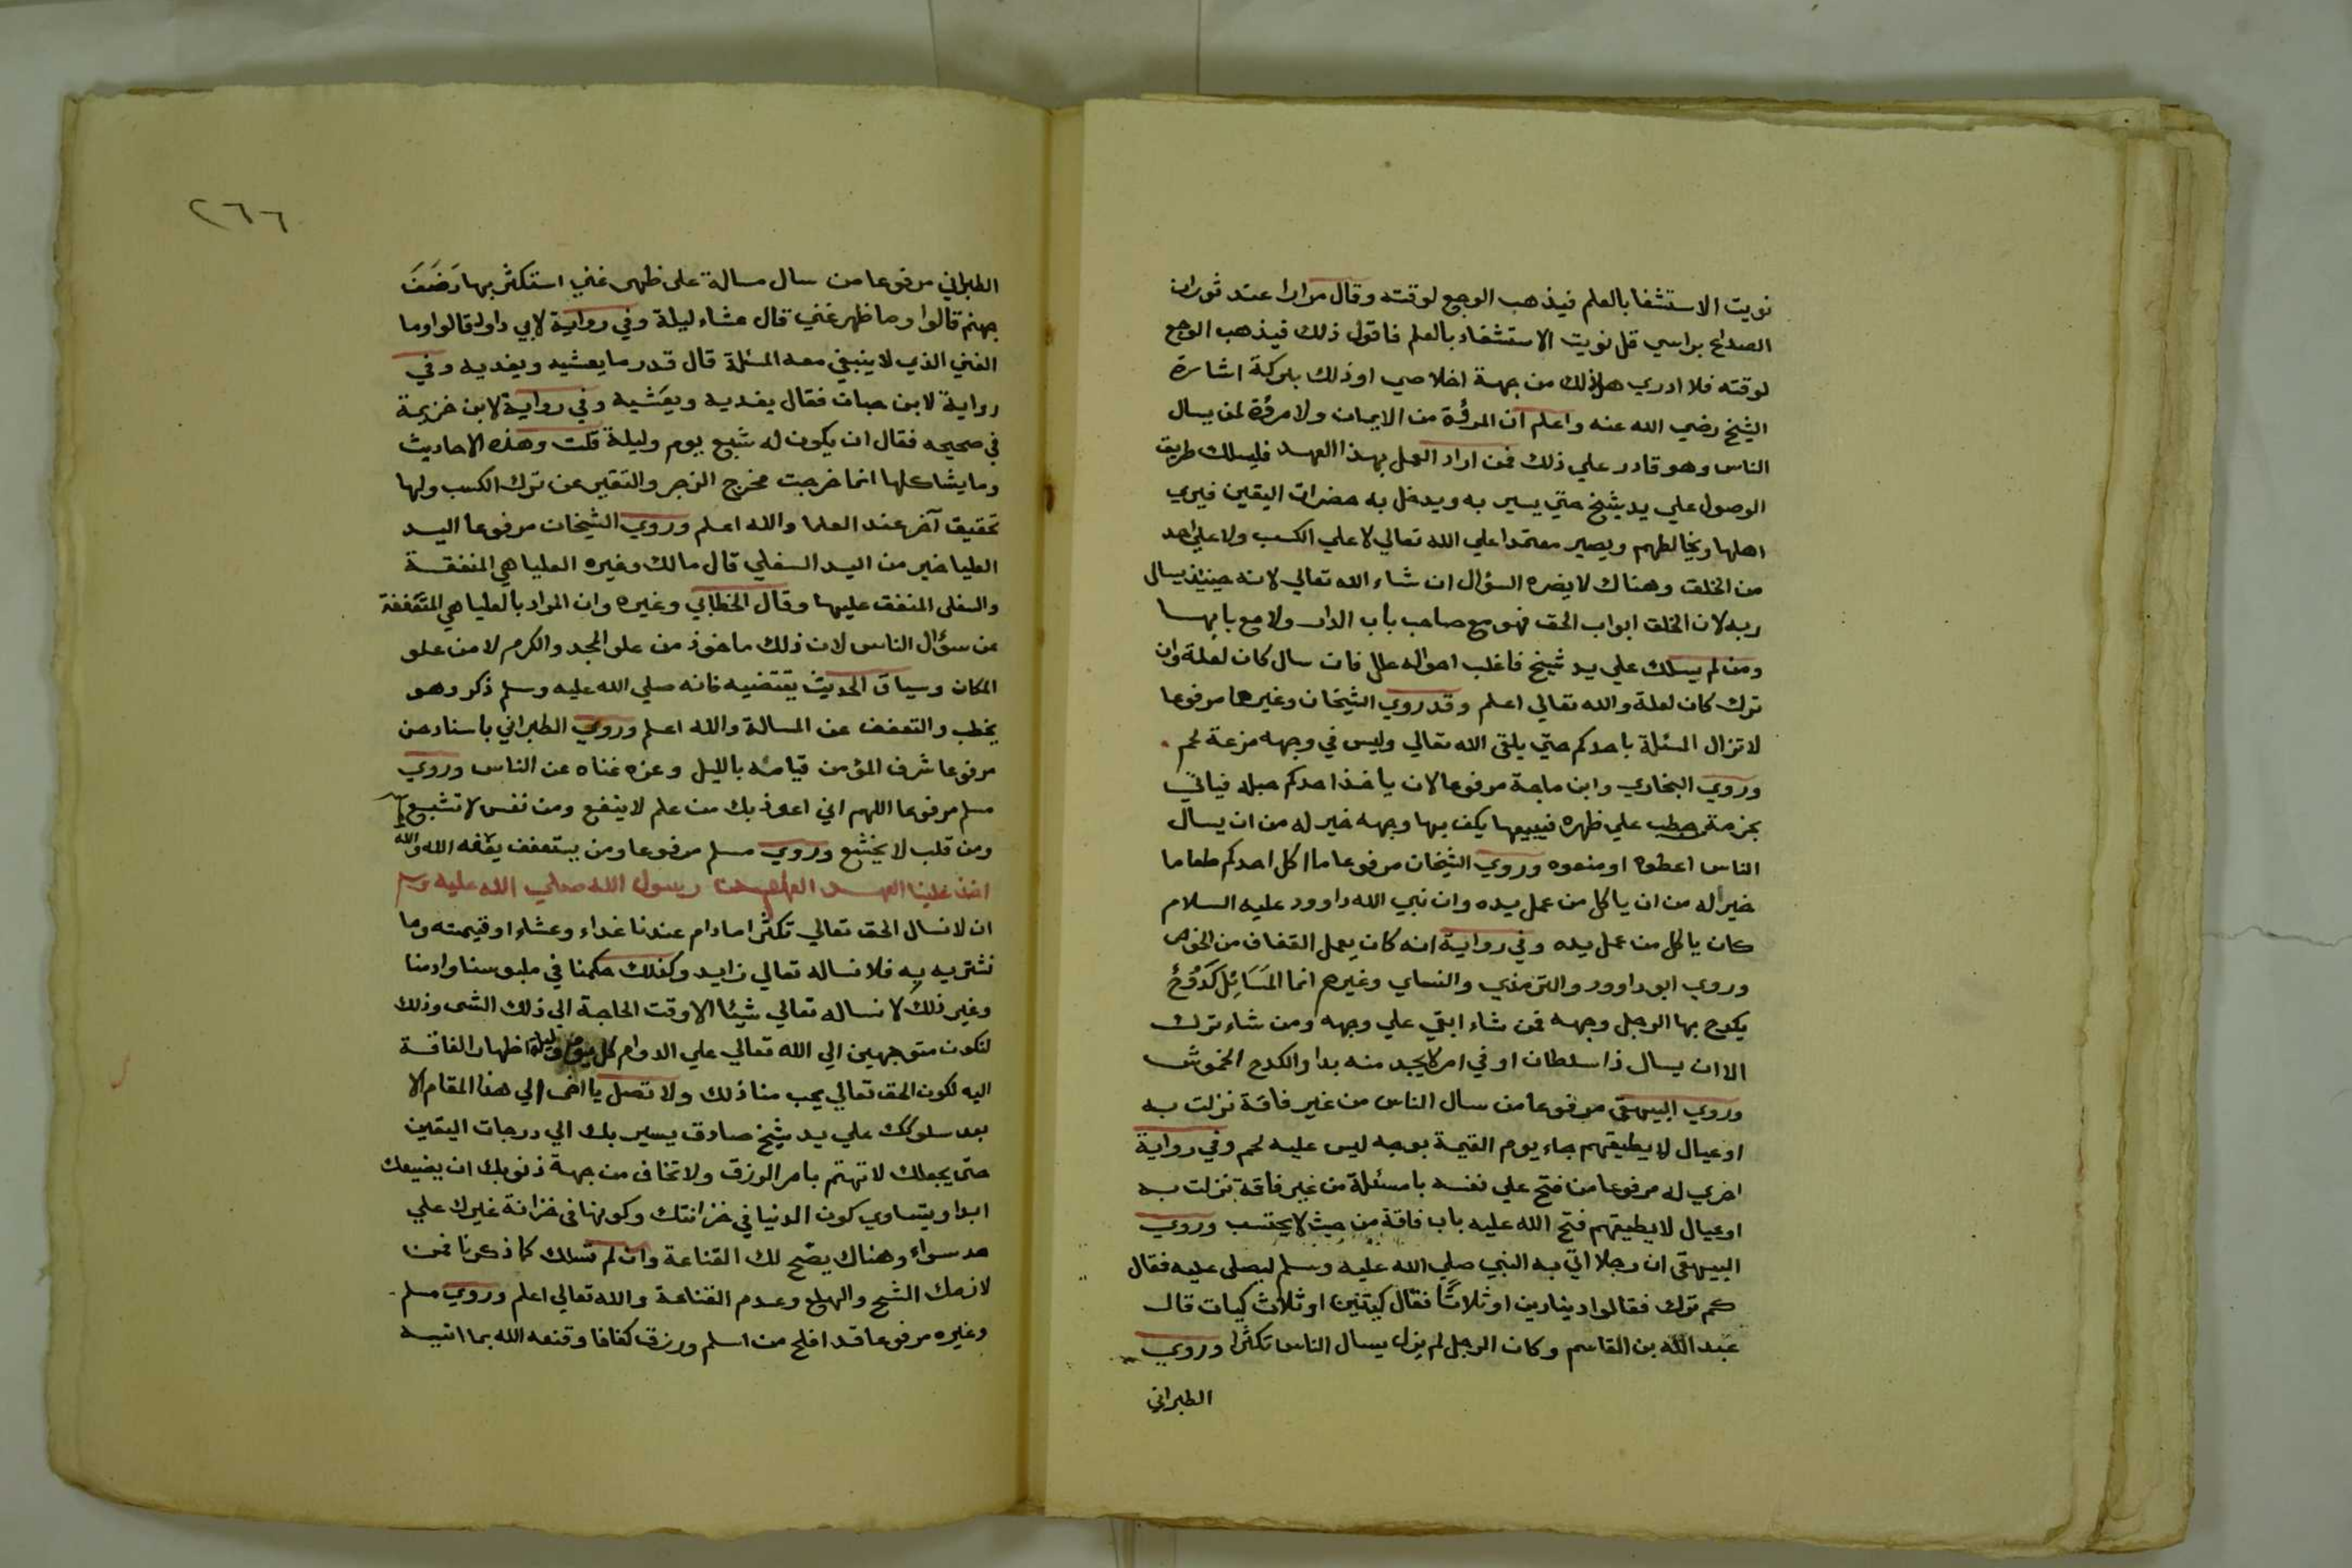 نويت الاستشفا بالعلم فيذهب الوجع لوقته وقال مرارا عند ثوران
الصداع براسي قل نويت الاستشفاء بالعلم فاقول ذلك فيذهب الوجع
لوقته فلا ادري هل ذلك من جهة اخلاصي او ذلك ببركة اشارة
الشيخ رضي الله عنه واعلم ان المروَّة من الايمان ولا مروَّة لمن يسال
الناس وهو قادر علي ذلك فمن اراد العمل بهذا العهد فليسلك طريق
الوصول علي يد شيخ حتي يسير به ويدخل به حضرات اليقين فيري
اهلها ويخالطهم ويصير معتمدا علي الله تعالي لا علي الكسب ولا علي احد
من الخلق وهناك لا يضره السؤال ان شاء الله تعالي لانه حينئذ يسال
ربه لان الخلق ابواب الحق فهو مع صاحب باب الدار ولا مع بابها
ومن لم يسلك علي يد شيخ فاغلب احواله علل فان سال كان لعلة وان
ترك كان لعلة والله تعالي اعلم وقد روي الشيخان وغيرهما مرفوعا
لا تزال المسئلة باحدكم حتي يلقي الله تعالي وليس في وجهه مزعة لحم
وروي البخاري وابن ماجة مرفوعا لان ياخذ احدكم حبله فياتي
بحزمة حطب علي ظهره فيبيعها يكف بها وجهه خير له من ان يسال
الناس اعطوه او منعوه وروي الشيخان مرفوعا ما اكل احدكم طعاما
خيرا له من ان ياكل من عمل يده وان نبي الله داوود عليه السلام
كان ياكل من عمل يده وفي رواية انه كان يعمل القفاف من الخوص
وروي ابو داوود والترمذي والنساي وغيرهم انما المَسَائِل كَدُوْحٌ
يكدح بها الرجل وجهه فمن شاء ابقي علي وجهه ومن شاء ترك
الا ان يسال ذا سلطان او في امر لا يجد منه بدا والكدح الخموش
وروي البيهقي مرفوعا من سال الناس من غير فاقة نزلت به
او عيال لا يطيقهم جاء يوم القيمة بوجه ليس عليه لحم وفي رواية
اخري له مرفوعا من فتح علي نفسه باب مسئلة من غير فاقة نزلت به
او عيال لا يطيقهم فتح الله عليه باب فاقة من حيث لا يحتسب وروي
البيهقي ان رجلا اتي به النبي صلي الله عليه وسلم ليصلي عليه فقال
كم ترك فقالوا دينارين او ثلاثًا فقال كيتين او ثلاث كيات قال
عبد الله بن القاسم وكان الرجل لم يزل يسال الناس تكثرا وروي
الطبراني
٢٦٦
الطبراني مرفوعا من سال مسالة علي ظهر غني استكثر بها رَضَفَ
جهنم قالوا وما ظهر غني قال عشاء ليلة وفي رواية لابي داود قالوا وما
الغني الذي لا ينبغي معه المسئلة قال قدر ما يعشيه ويغديه وفي
رواية لابن حبان فقال يغديه ويعشيه وفي رواية لابن خزيمة
في صحيحه فقال ان يكون له شبع يوم وليلة قلت وهذه الاحاديث
وما يشاكلها انما خرجت مخرج الزجر والتنفير عن ترك الكسب ولها
تحقيق آخر عند العلما والله اعلم وروي الشيخان مرفوعا اليد
العليا خير من اليد السفلي قال مالك وغيره العليا هي المنفقة
والسفلي المنفق عليها وقال الخطابي وغيره وان المراد بالعليا هي المتعففة
عن سؤال الناس لان ذلك ماخوذ من علو المجد والكرم لا من علو
المكان وسياق الحديث يقتضيه فانه صلي الله عليه وسلم ذكر وهو
يخطب والتعفف عن المسالة والله اعلم وروي الطبراني باسناد حسن
مرفوعا شرف المؤمن قيامه بالليل وعزه غناه عن الناس وروي
مسلم مرفوعا اللهم اني اعوذ بك من علم لا ينفع ومن نفس لا تشبع
ومن قلب لا يخشع وروي مسلم مرفوعا ومن يستعفف يعفه الله والله
اخذ علينا العهد العام من رسول الله صلي الله عليه وسلم
ان لا نسال الحق تعالي تكثرا ما دام عندنا غداء وعشاء او قيمته وما
نشتريه به فلا نساله تعالي زايد وكذلك حكمنا في ملبوسنا وادمنا
وغير ذلك لا نساله تعالي شيئا الا وقت الحاجة الي ذلك الشي وذلك
لنكون متوجهين الي الله تعالي علي الدوام كل يوم وليلة اظهار الفاقة
اليه لكون الحق تعالي يحب منا ذلك ولا تصل يا اخي الي هذا المقام الا
بعد سلوكك علي يد شيخ صادق يسير بك الي درجات اليقين
حتي يجعلك لا تهتم بامر الرزق ولا تخاف من جهة ذنوبك ان يضيعك
ابدا ويتساوي كون الدنيا في خزانتك وكونها في خزانة غيرك علي
حد سواء وهناك يصّح لك القناعة وان لم تسلك كما ذكرنا فمن
لازمك الشح والهلع وعدم القناعة والله تعالي اعلم وروي مسلم
وغيره مرفوعا قد افلح من اسلم ورزق كفافا وقنعه الله بما اتيه